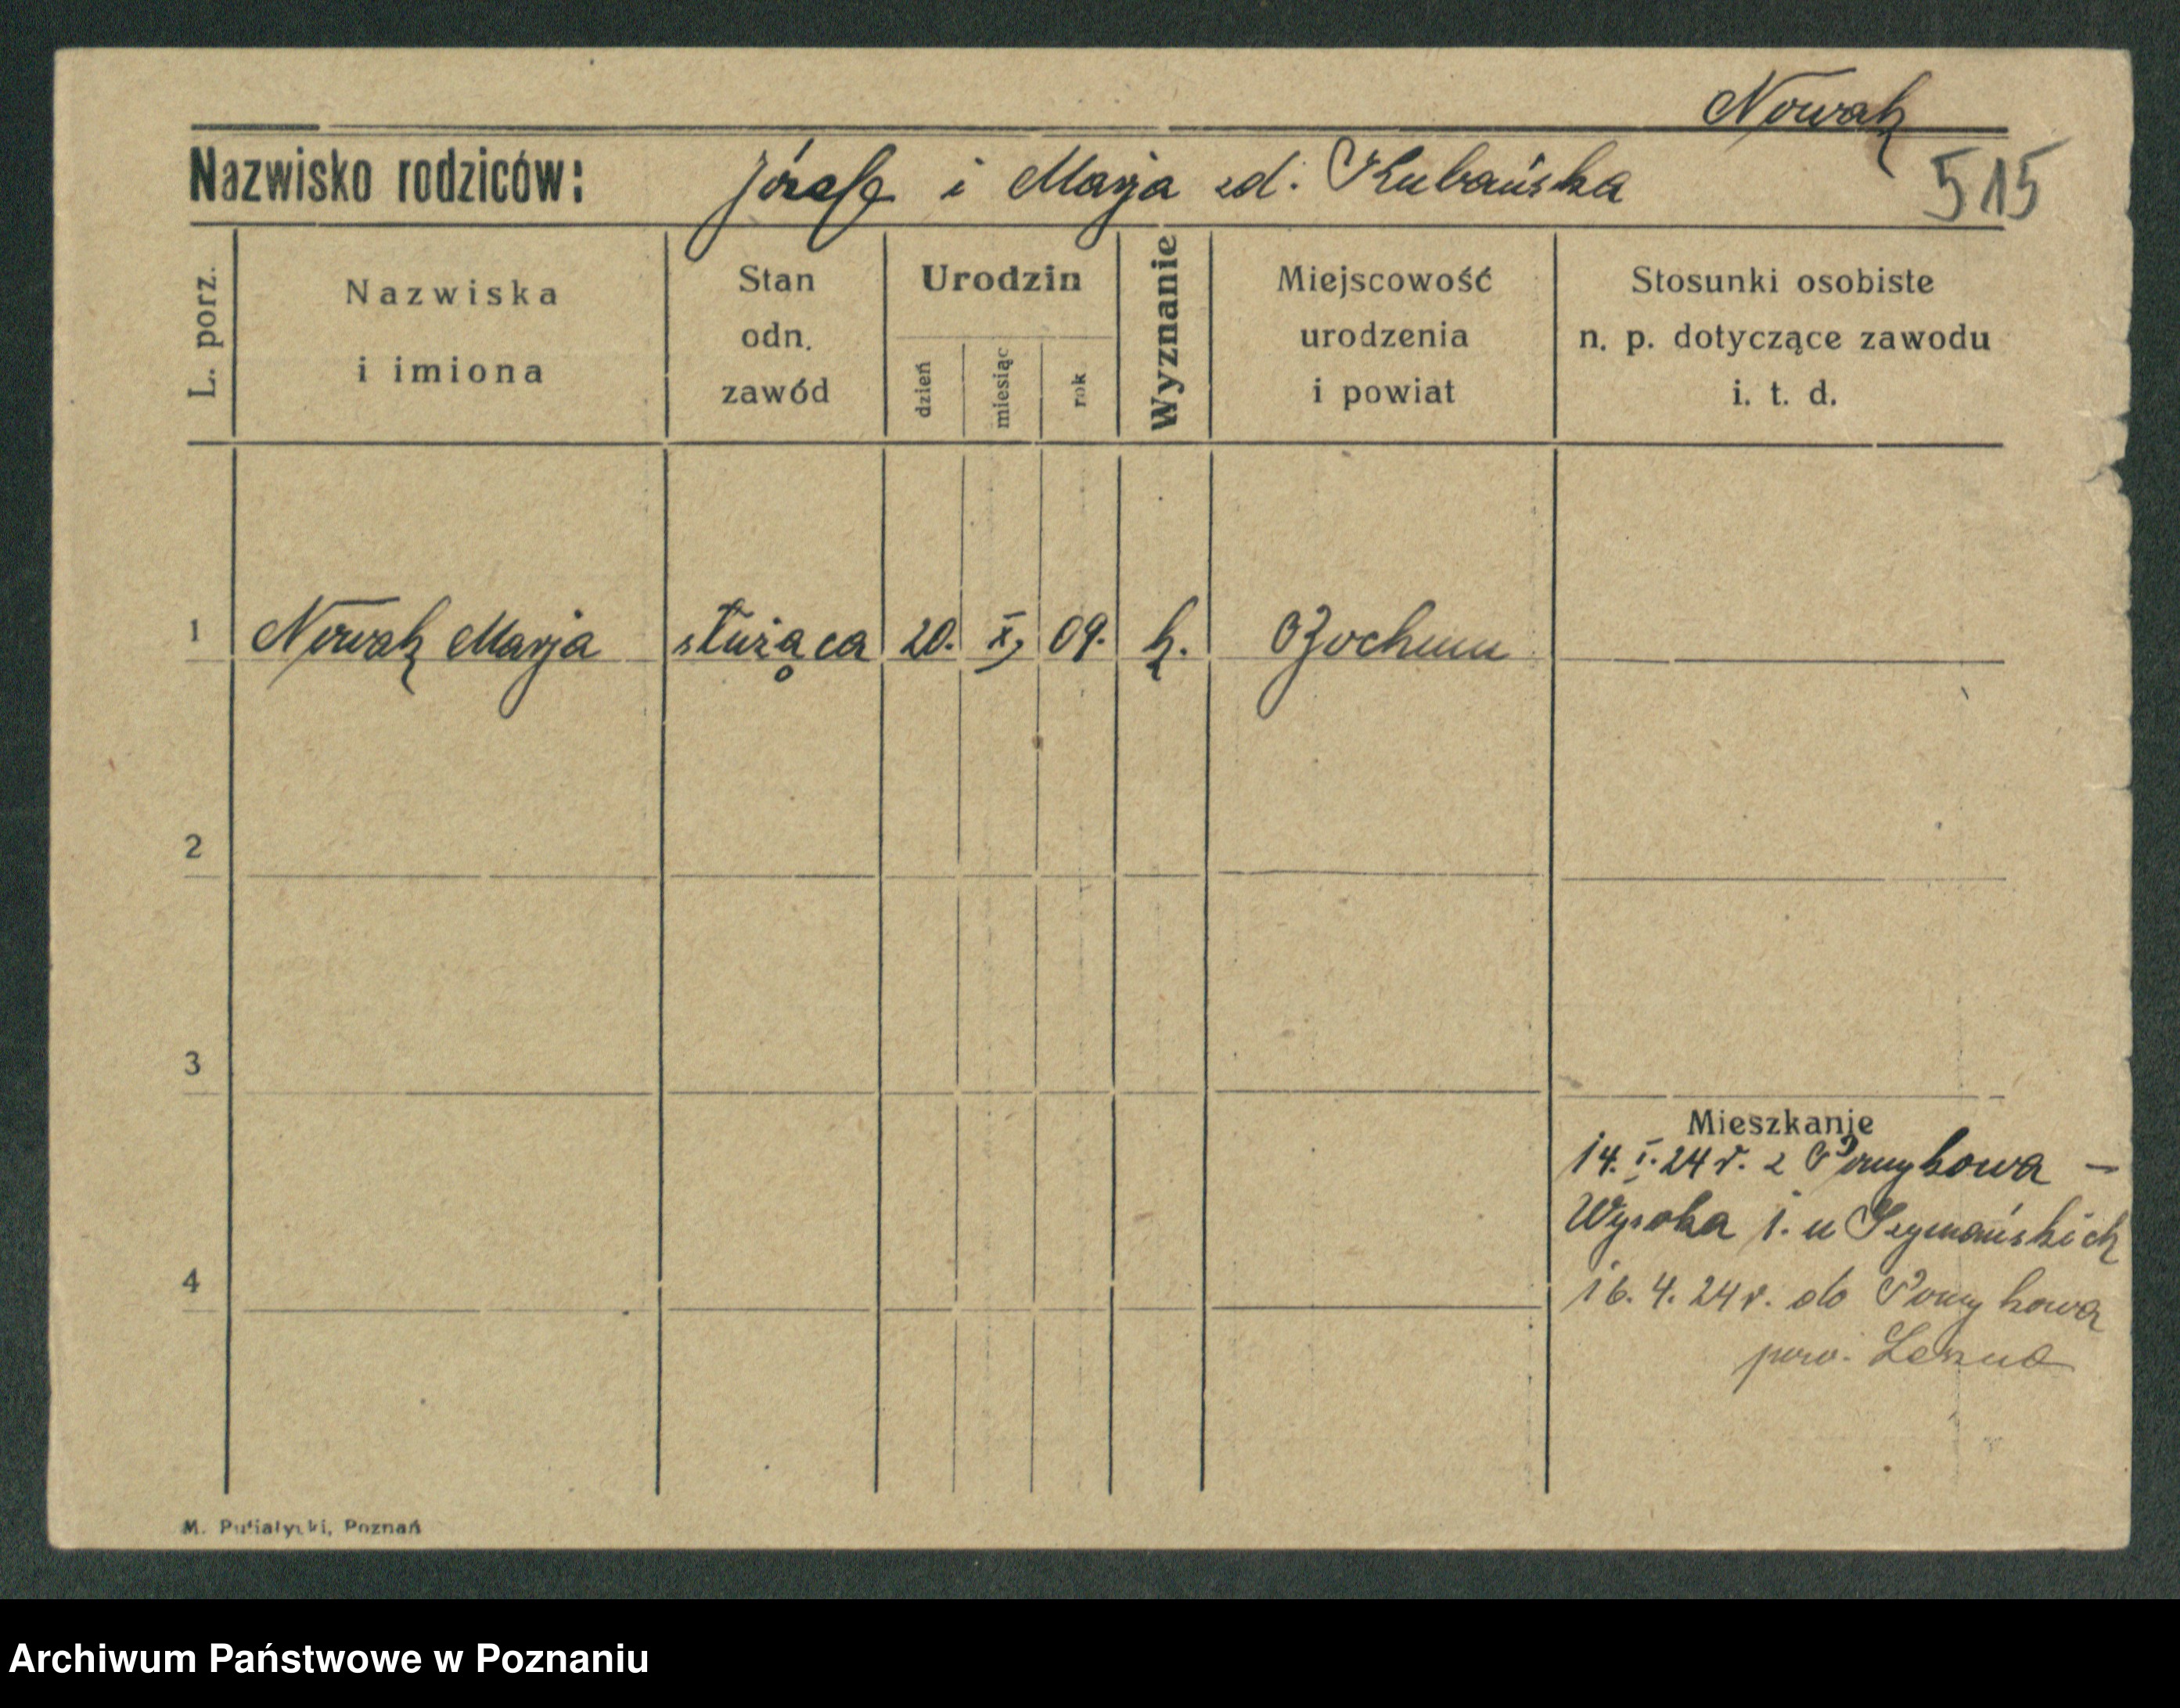 Nowak
Nazwisko rodziców: Józef i Marja zd. Kubańska
515
L. porz.
Nazwiska
i imiona
Stan
odn.
zawód
Urodzin
dzień
miesiąc
rok
Wyznanie
Miejscowość
urodzenia
i powiat
Stosunki osobiste
n. p. dotyczące zawodu
i. t. d.
1 Nowak Marja służąca 20. X, 09. k. Bochum
2
3
Mieszkanie
14. I. 24 r. z Pomykowa —
Wysoka 1. u Szymańskich
4
16. 4. 24 r. do Pomykowa
pow. Leszno
M. Putiatycki, Poznań
Archiwum Państwowe w Poznaniu